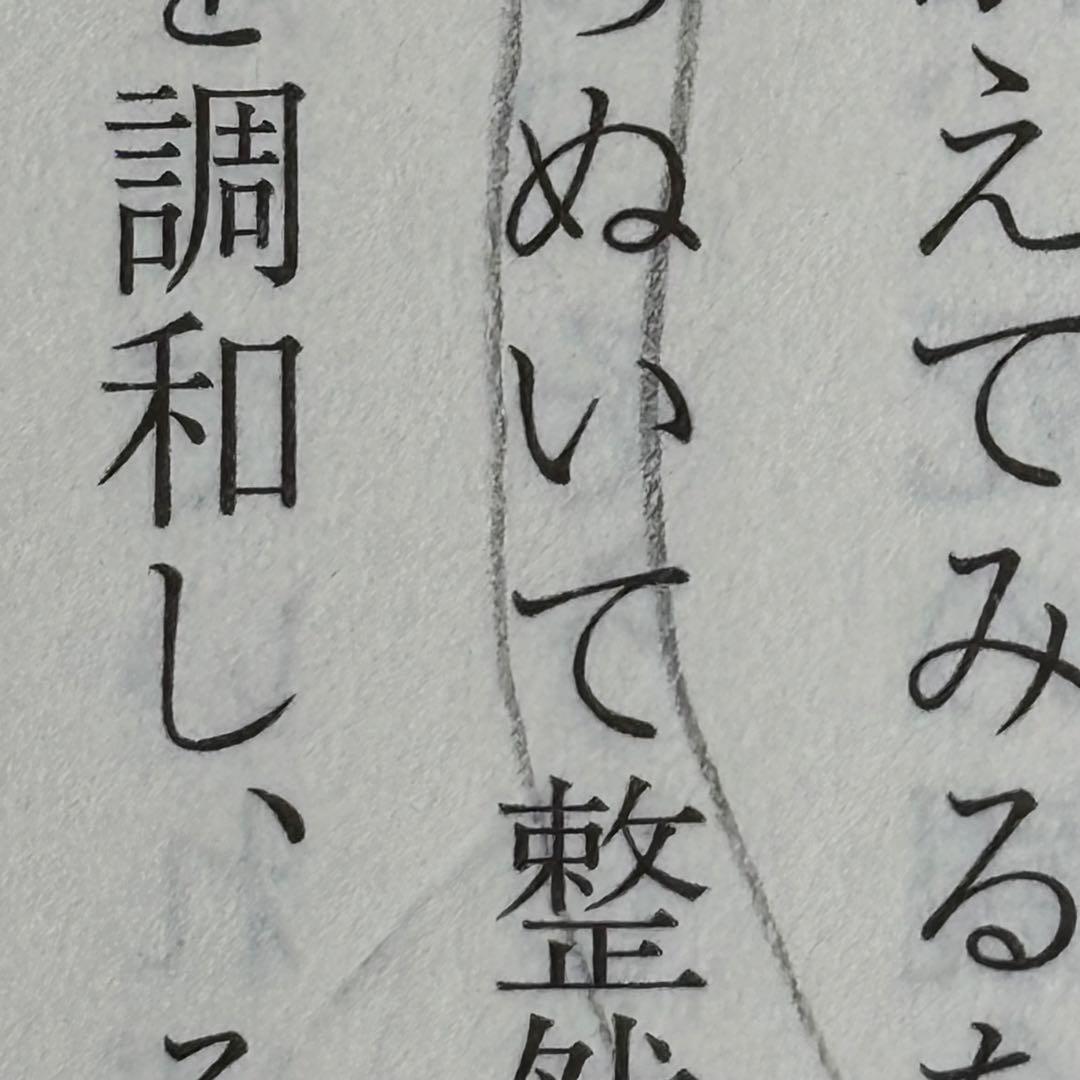 えてみる
ぬいて整然
と調和し、